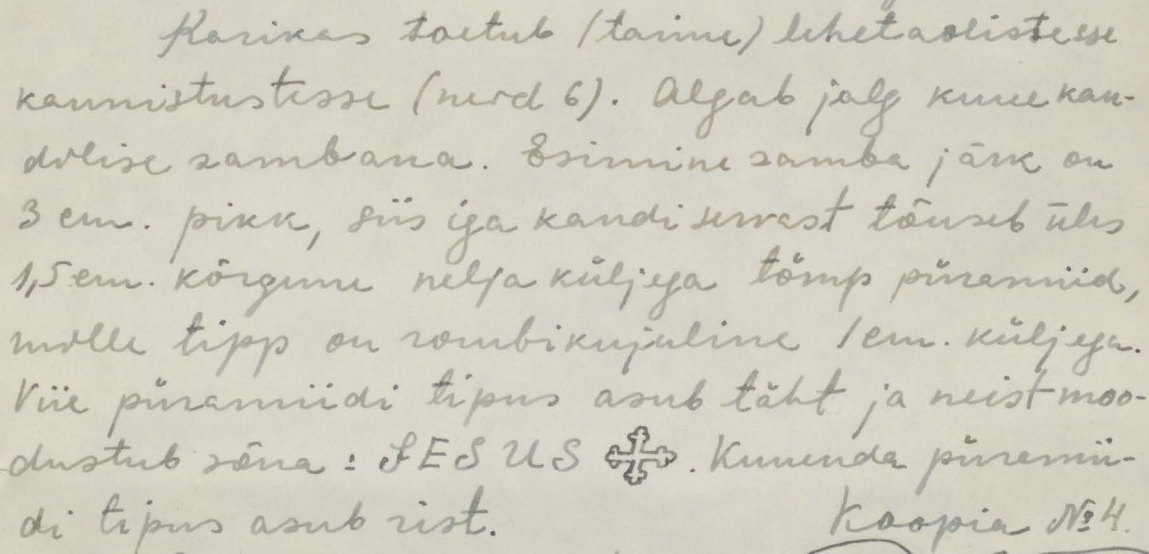 Karikas toetub (tainu) lehetaolistesse
kaunistustesse (neid 6). Algab jalg kuue kan-
dilise sambana. Esimine samba järk on
3 cm. pikk, siis iga kandi servast tõuseb üles
1,5 cm. kõrgune nelja küljega tömp püramiid,
mille tipp on rombikujuline 1 cm. küljega.
Viie püramiidi tipus asub täht ja neist moo-
dustub sõna: JESUS . Kuuenda püramii-
di tipus asub rist. Koopia № 4.